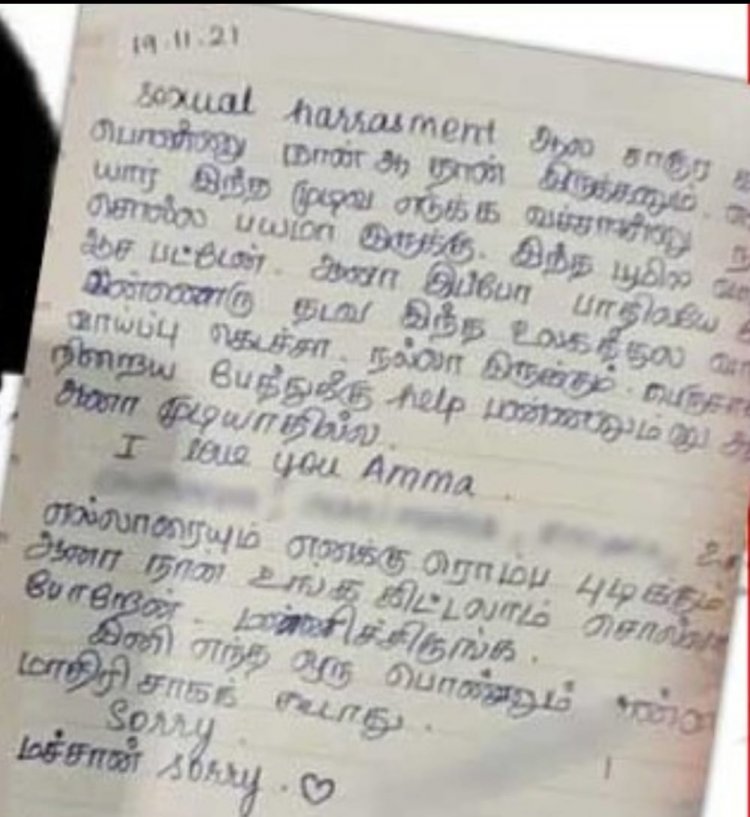 19.11.21
sexual harrasment ஆல சாகுர
பொண்ணு நான் ஆ தான் இருக்கணும்.
யார் இந்த முடிவ எடுக்க வச்சான்னு
சொல்ல பயமா இருக்கு. இந்த பூமில
ஆச பட்டேன். ஆனா இப்போ பாதிலயே
இன்னொரு தடவ இந்த உலகத்துல
வாய்ப்பு கெடச்சா. நல்லா இருக்கும்.
நிறைய பேத்துக்கு help பண்ணனும்னு
ஆனா முடியாதில்ல.
I love you Amma.
எல்லாரையும் எனக்கு ரொம்ப புடிக்கும்
ஆனா நான் உங்க கிட்டலாம்
போறேன். மன்னிச்சிருங்க.
இனி எந்த ஒரு பொண்ணும்
மாதிரி சாகக் கூடாது.
Sorry.
மச்சான் sorry. ♡